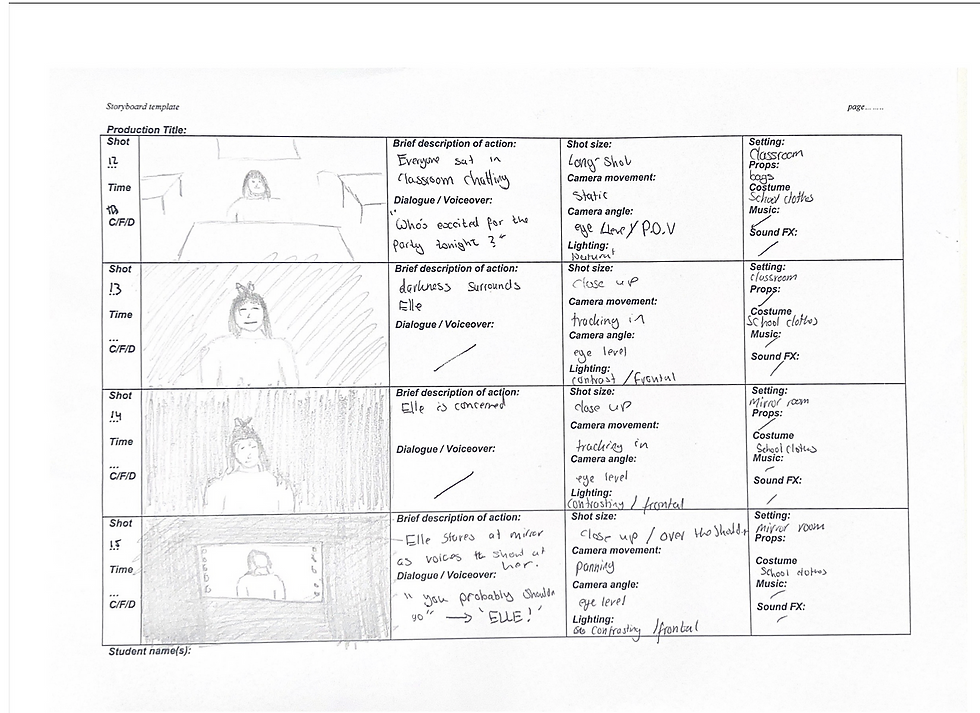 Storyboard template
page........
Production Title:
Shot
12
Time
C/F/D
Brief description of action:
Everyone sat in
classroom chatting
Dialogue / Voiceover:
"Who's excited for the
party tonight?"
Shot size:
Long-Shot
Camera movement:
Static
Camera angle:
eye Level / P.O.V
Lighting:
Natural
Setting:
Classroom
Props:
bags
Costume
School clothes
Music:
Sound FX:
Shot
13
Time
...
C/F/D
Brief description of action:
darkness surrounds
Elle
Dialogue / Voiceover:
Shot size:
close up
Camera movement:
tracking in
Camera angle:
eye level
Lighting:
contrast / frontal
Setting:
classroom
Props:
Costume
School clothes
Music:
Sound FX:
Shot
14
Time
...
C/F/D
Brief description of action:
Elle is concerned
Dialogue / Voiceover:
Shot size:
close up
Camera movement:
tracking in
Camera angle:
eye level
Lighting:
contrasting / frontal
Setting:
Mirror room
Props:
Costume
School clothes
Music:
Sound FX:
Shot
15
Time
...
C/F/D
Brief description of action:
Elle stares at mirror
as voices at
her.
Dialogue / Voiceover:
"you probably
go" → 'ELLE!'
Shot size:
close up / over the
Camera movement:
panning
Camera angle:
eye level
Lighting:
contrasting / frontal
Setting:
mirror room
Props:
Costume
School clothes
Music:
Sound FX:
Student name(s):